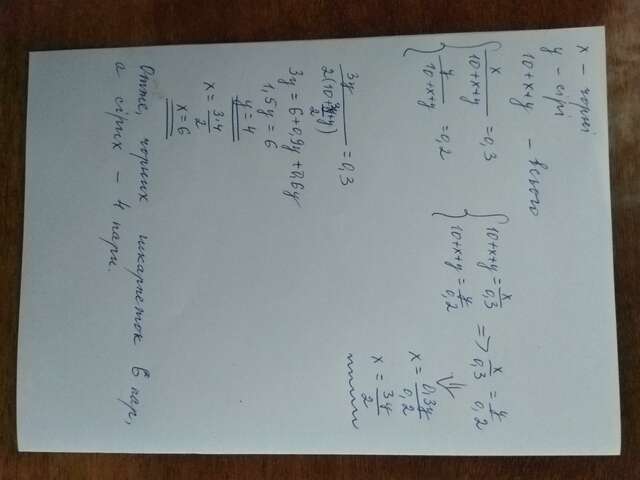 x – чорні
y – сірі
10+x+y – всього
{ x/(10+x+y) = 0,3
{ y/(10+x+y) = 0,2
{ 10+x+y = x/0,3
{ 10+x+y = y/0,2
=> x/0,3 = y/0,2
⇓
x = 0,3y/0,2
x = 3y/2
3y/2(10+3y/2+y) = 0,3
3y = 6+0,9y+0,6y
1,5y = 6
y = 4
x = 3·4/2
x = 6
Отже, чорних шкарпеток 6 пар,
а сірих – 4 пари.